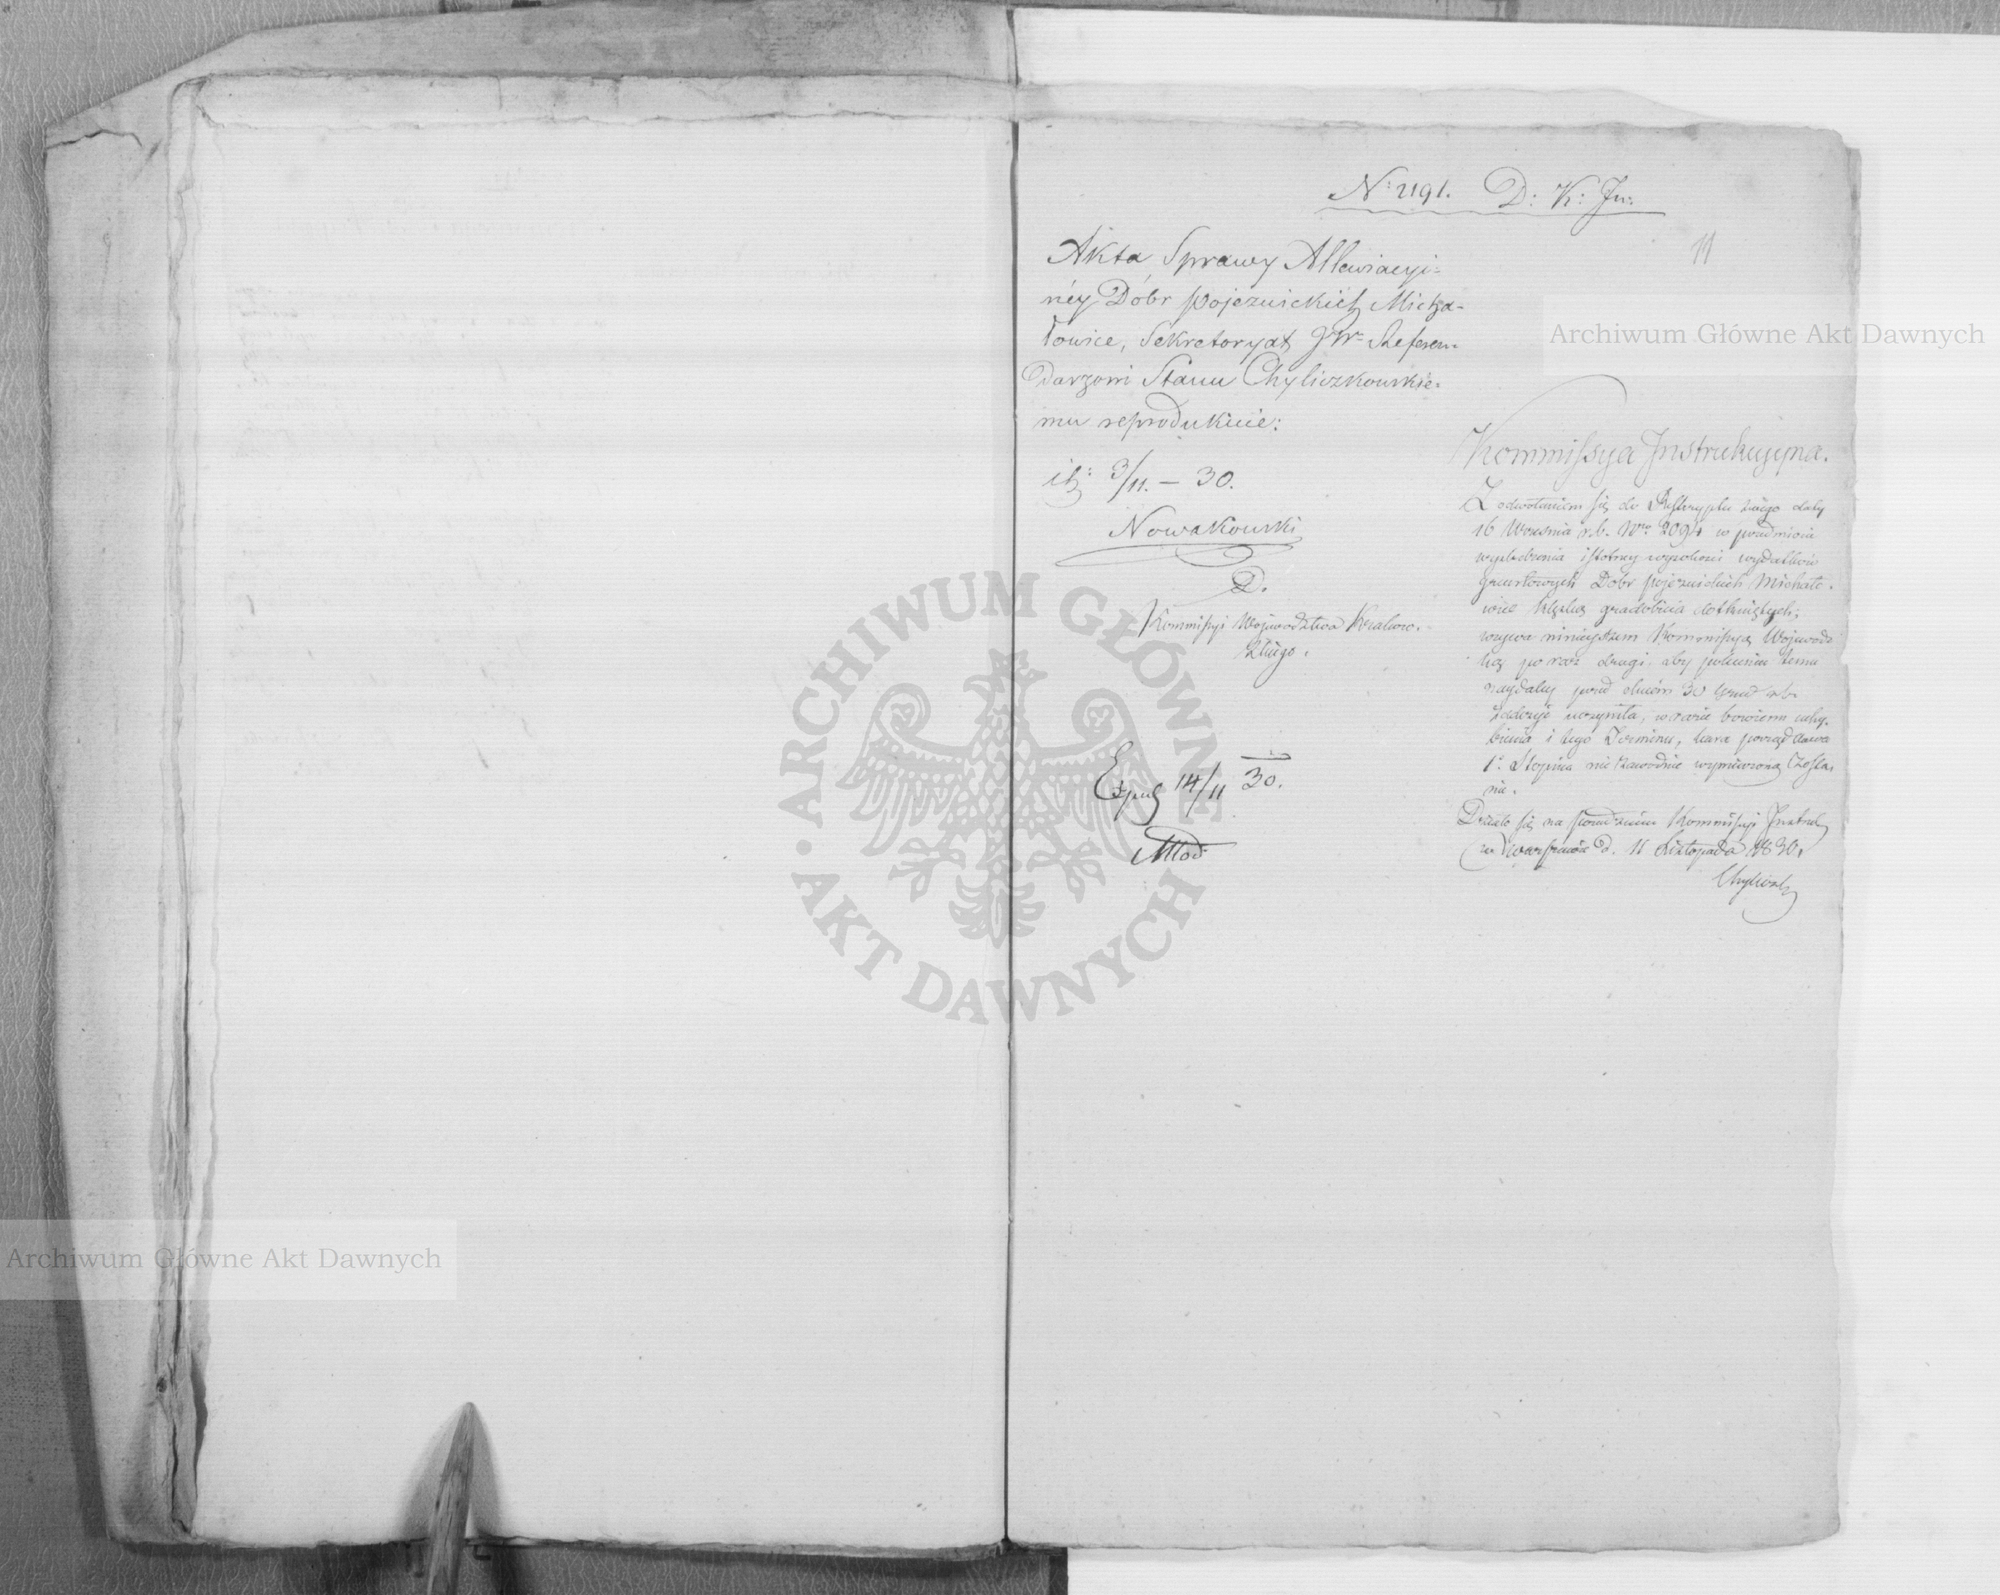 Nº 2191. D: K: In:
11
Akta Sprawy Allewiacyi=
néy Dóbr pojezuickich Micha=
łowice, Sekretaryat JWu Referen=
darzowi Stanu Chyliczkowskie=
mu reprodukuie:
3/11. — 30.
Nowakowski
D.
Kommissyi Województwa Krakow.
skiego.
Exped 14/11 30.
Kommissya Instrukcyjna.
Z odwołaniem się do Reskryptu swego daty
16 Września r.b. Nro 2094 w przedmiocie
wyśledzenia istotney wysokości wydatków
gruntowych Dóbr pojezuickich Michało=
wice klęską gradobicia dotkniętych;
wzywa ninieyszem Kommissyą Wojewodz
ką po raz drugi, aby poleceniu temu
naydaley przed dniem 30 Grud r.b.
zadosyć uczyniła, w razie bowiem uchy-
bienia i tego Terminu, kara porządkowa
1º Stopnia niezawodnie wymierzoną zosta=
nie.
Działo się na posiedzeniu Kommissyi Instruk
w Warszawie d. 11 Listopada 1830.
Archiwum Główne Akt Dawnych
Archiwum Główne Akt Dawnych
ARCHIWUM GŁÓWNE
AKT DAWNYCH